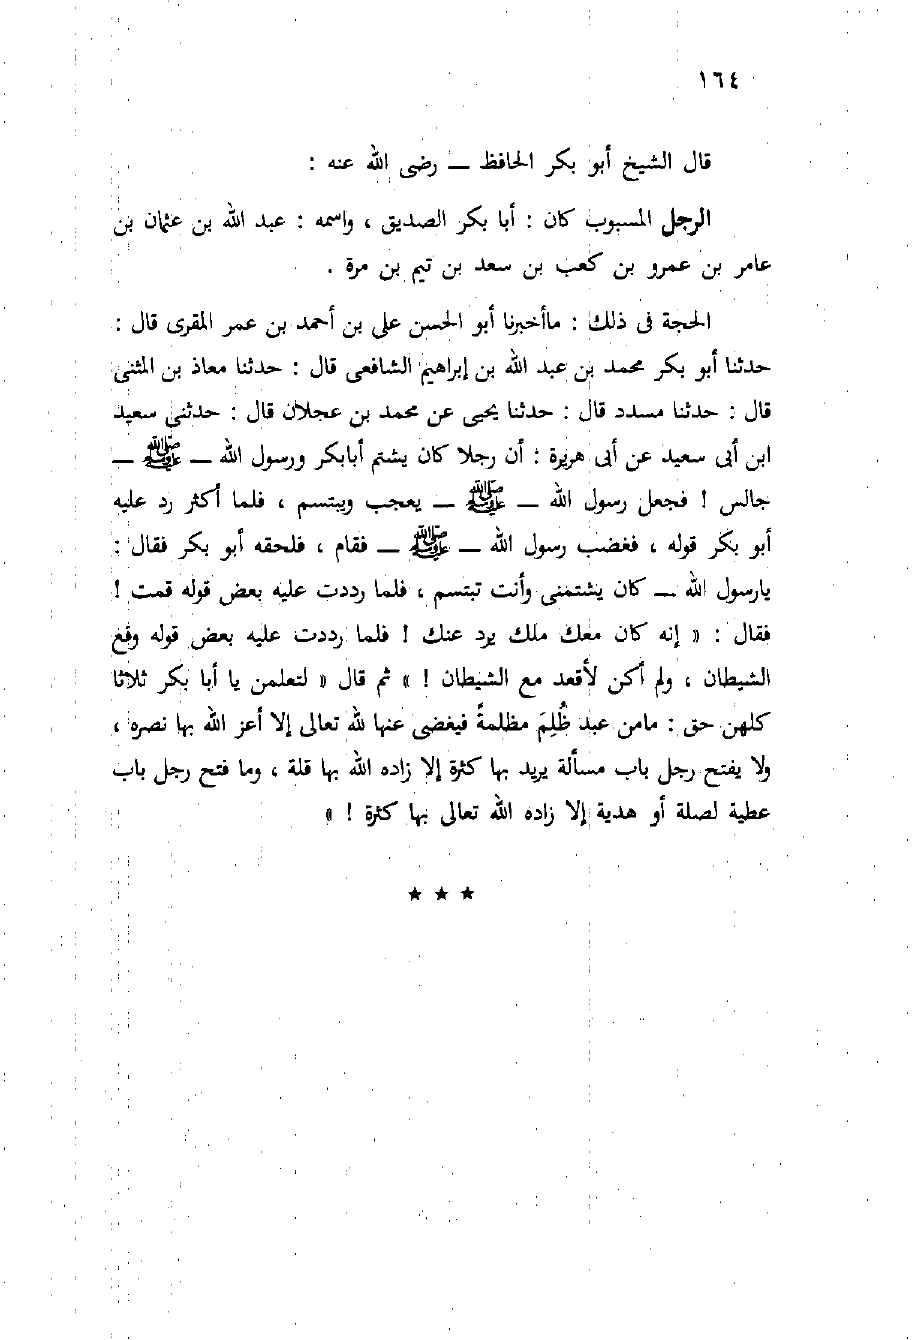 ١٦٤
قال الشيخ أبو بكر الحافظ — رضى الله عنه :
الرجل المسبوب كان : أبا بكر الصديق ، واسمه : عبد الله بن عثمان بن
عامر بن عمرو بن كعب بن سعد بن تيم بن مرة .
الحجة فى ذلك : ماأخبرنا أبو الحسن على بن أحمد بن عمر المقرى قال :
حدثنا أبو بكر محمد بن عبد الله بن إبراهيم الشافعى قال : حدثنا معاذ بن المثنى
قال : حدثنا مسدد قال : حدثنا يحيى عن محمد بن عجلان قال : حدثنى سعيد
ابن أبى سعيد عن أبى هريرة : أن رجلا كان يشتم أبابكر ورسول الله — ﷺ —
جالس ! فجعل رسول الله — ﷺ — يعجب ويبتسم ، فلما أكثر رد عليه
أبو بكر قوله ، فغضب رسول الله — ﷺ — فقام ، فلحقه أبو بكر فقال :
يارسول الله — كان يشتمنى وأنت تبتسم ، فلما رددت عليه بعض قوله قمت !
فقال : « إنه كان معك ملك يرد عنك ! فلما رددت عليه بعض قوله وقع
الشيطان ، ولم أكن لأقعد مع الشيطان ! » ثم قال « لتعلمن يا أبا بكر ثلاثا
كلهن حق : مامن عبد ظُلِمَ مظلمةً فيغضى عنها لله تعالى إلا أعز الله بها نصره ،
ولا يفتح رجل باب مسألة يريد بها كثرة إلا زاده الله بها قلة ، وما فتح رجل باب
عطية لصلة أو هدية إلا زاده الله تعالى بها كثرة ! »
★ ★ ★